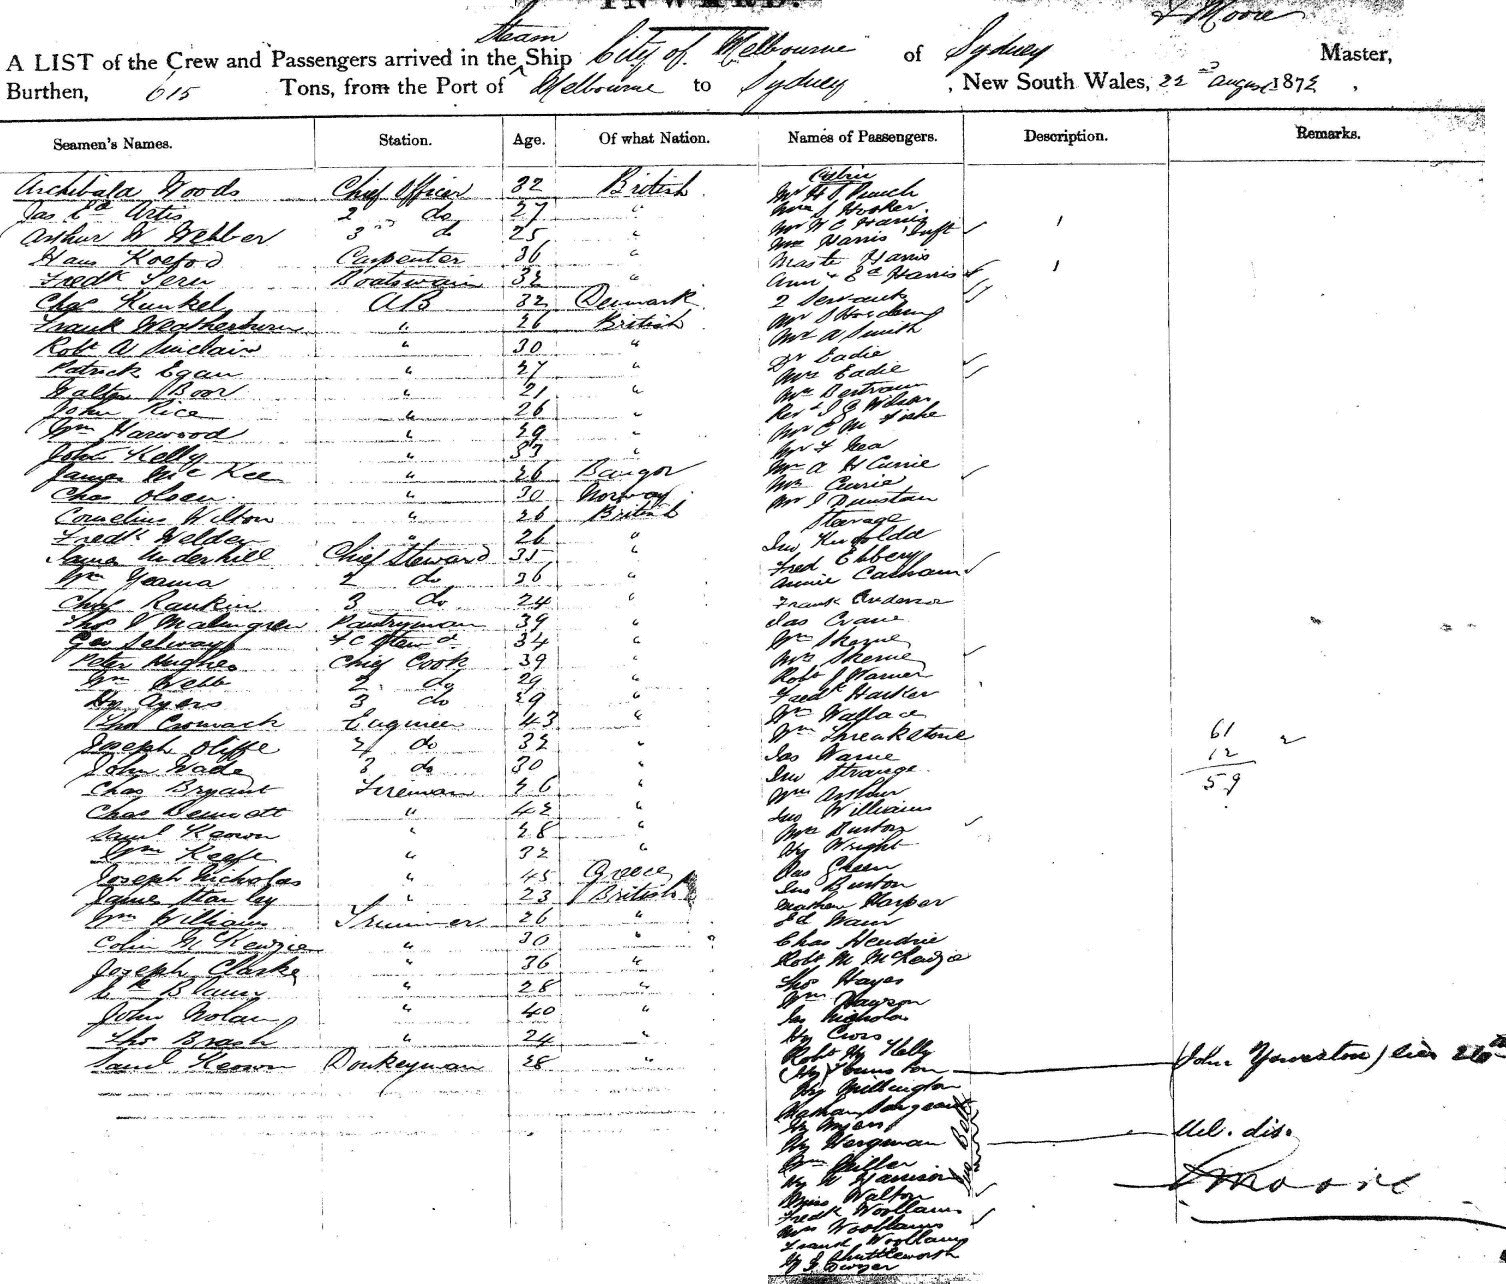 INWARD.
Steam
J Moore
A LIST of the Crew and Passengers arrived in the Ship City of Melbourne of Sydney Master,
Burthen, 615 Tons, from the Port of Melbourne to Sydney, New South Wales, 22nd August 1872.
Seamen's Names. Station. Age. Of what Nation. Names of Passengers. Description. Remarks.
Archibald Woods Chief Officer 32 British
Artis 2 do 27 "
Arthur W Webber 3rd do 25 "
Hans Koefod Carpenter 36 "
Fredk Boatswain 32 "
Chas Kunkel AB 32 Denmark
Frank Weatherburn " 26 British
Robt A Sinclair " 30 "
Patrick Egan " 27 "
Walter Boor " 21 "
John Rice " 26 "
Wm Harwood " 29 "
John Kelly " 33 "
James McKee " 26 Bangor
Chas Olsen " 30 Norway
Cornelius Wilton " 26 British
Fredk Welden " 26 "
James Underhill Chief Steward 35 "
Wm 2 do 36 "
Chas Rankin 3 do 24 "
Thos J Malmgren Pantryman 39 "
Geo Selway F C Stewd 34 "
Peter Hughes Chief Cook 39 "
Wm Webb 2 do 29 "
Hy Ayers 3 do 29 "
Thos Cromack Engineer 43 "
Joseph Oliffe 2 do 32 "
John Wade 3 do 30 "
Chas Bryant Fireman 26 "
Chas " 42 "
Saml Keown " 28 "
Wm Keefe " 32 "
Joseph Nicholas " 45 Greece
James Stanley " 23 British
Wm Williams Trimmer 26 "
Colin McKenzie " 30 "
Joseph Clarke " 36 "
" 28 "
John Nolan " 40 "
Thos Brash " 24 "
Saml Keown Donkeyman 28 "
Cabin
Mr H
Mrs J Hooker
Mr W C Harris
Mrs Harris Inft
Master Harris
Ann & Ed Harris
2 Servants
Mr J
Mr A Smith
Dr Eadie
Mrs Eadie
Mr Bertram
Revd J G Wilson
Mr E M
Mr F
Mr A H Currie
Mrs Currie
Mr J Dunstan
Steerage
Jno
Fred Ebbery
Annie
Frank Anderson
Jas Crane
Wm Skerne
Mrs Skerne
Robt J Warner
Fredk Harker
Wm Wallace
Wm Threakstone
Jas Warne
Jno Strange
Wm Arthur
Jno Williams
Mrs Burton
Hy Wright
Jas Green
Jno Burton
Harper
Ed
Chas Hendrie
Robt M McKenzie
Thos Hayes
Wm Dawson
Jas Nicholas
Hy Cross
Robt Hy Kelly
(Hy)
Hy Millington
Nathan Sargeant
Hy Myers
Hy Bergman
Wm Miller
Hy W Harrison
Jno Bell
Walton
Fredk Woollams
Mrs Woollams
Frank Woollams
Shuttleworth
Dwyer
61
12
59
(John
dis.
J Moore